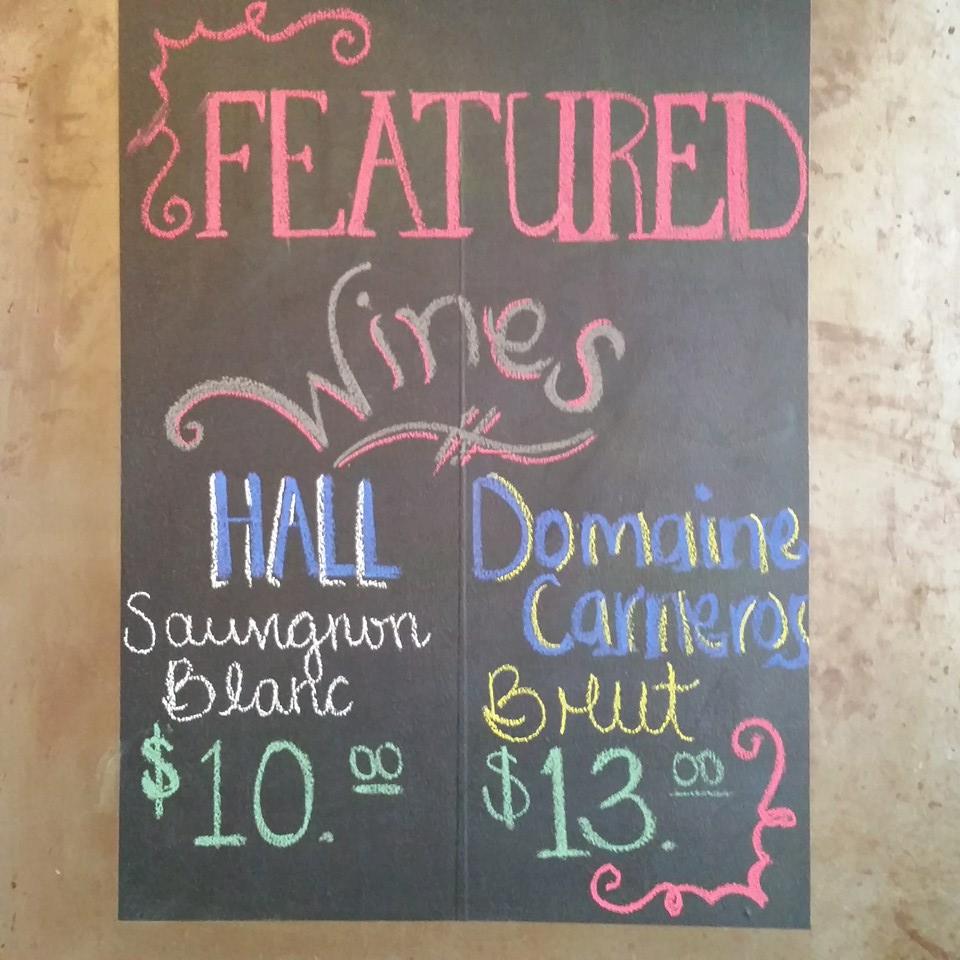 FEATURED
Wines
HALL
Sauvignon
Blanc
$10.00
Domaine
Carneros
Brut
$13.00